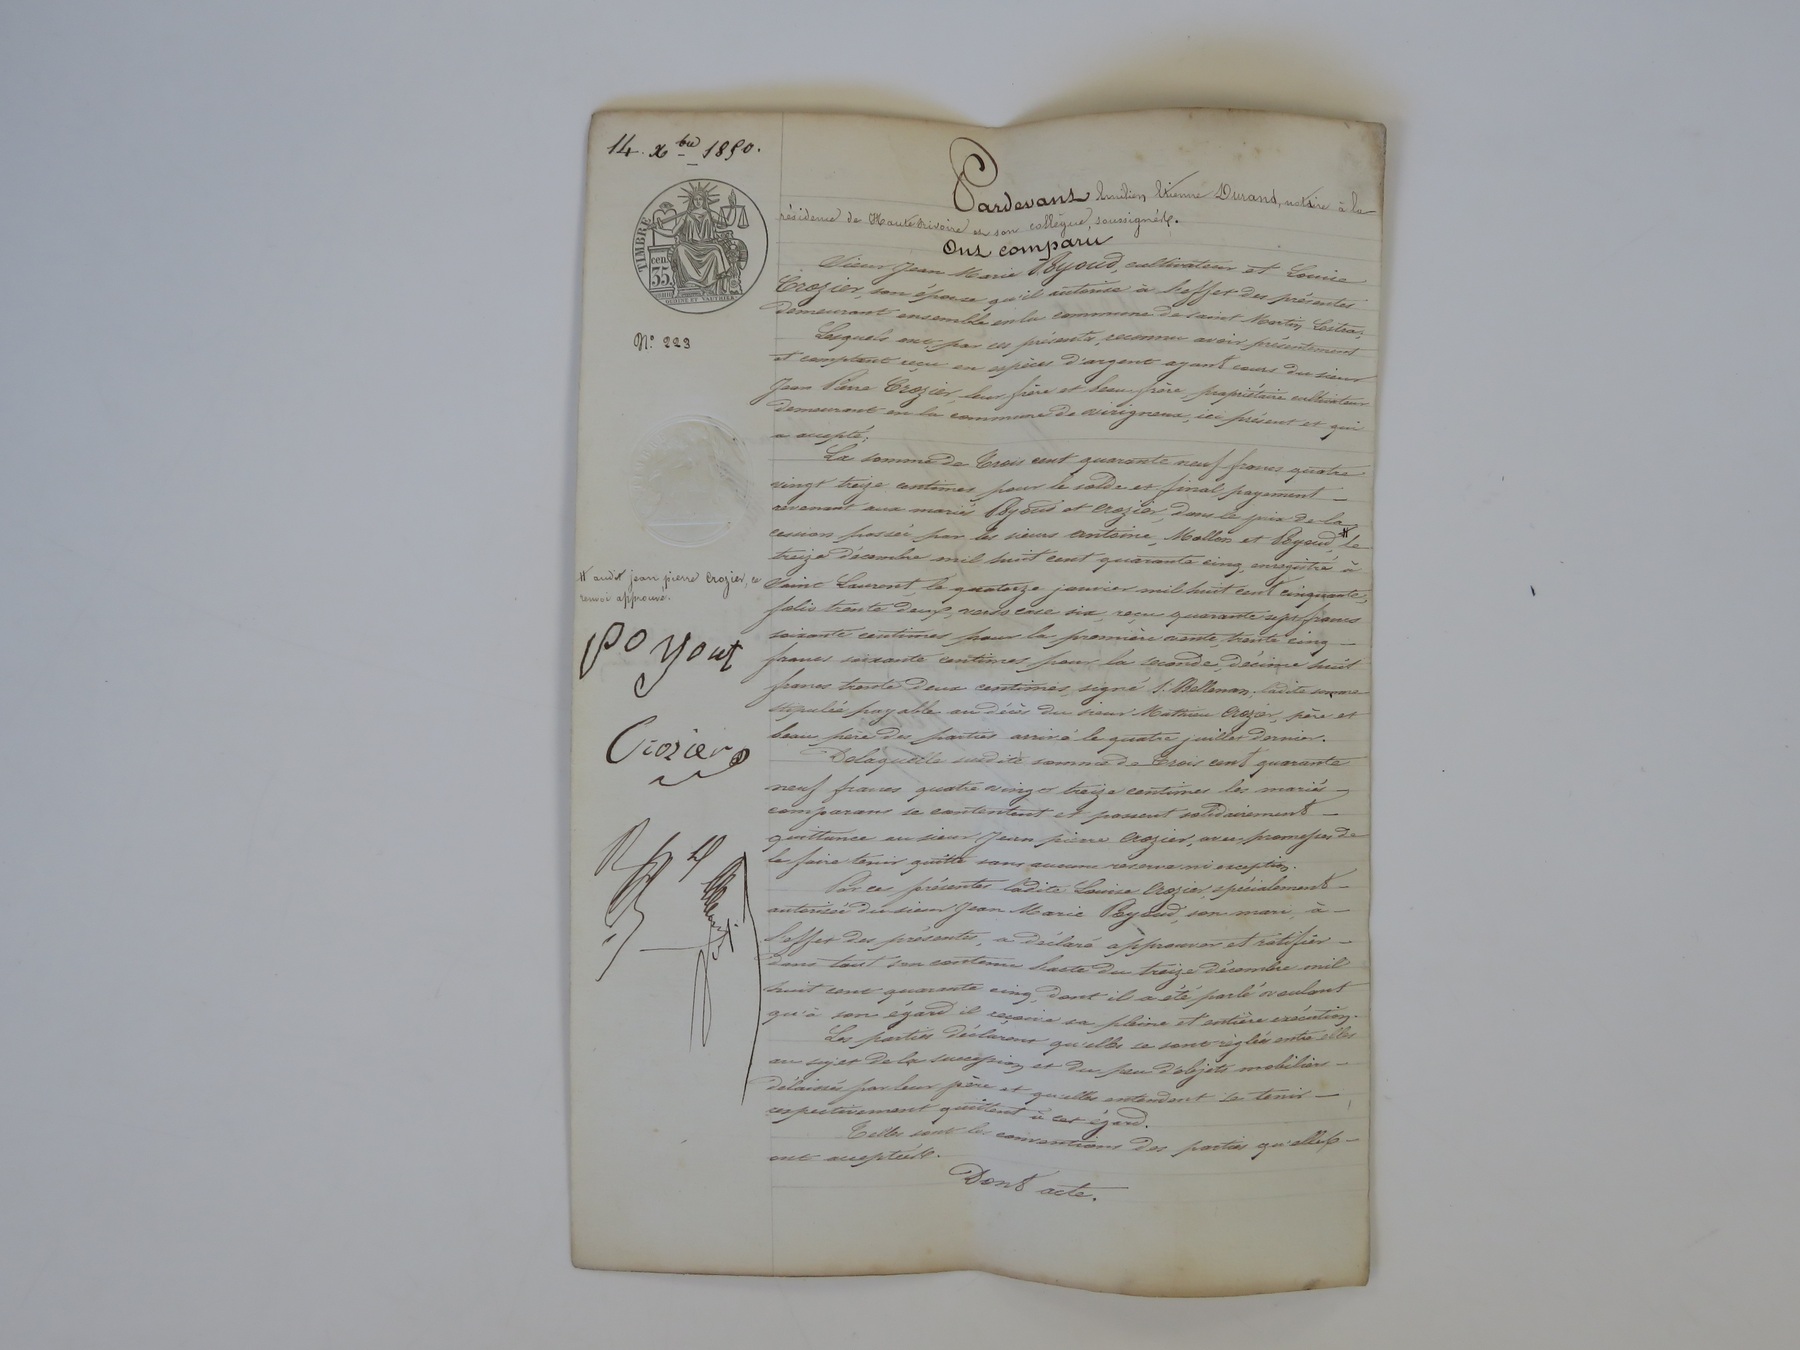 14. Xbre 1850.
TIMBRE
cen.
35
N° 223
Pardevant Emilien Etienne Durand, notaire à la
résidence de Hauterivoire et son collègue, soussignés.
Ont comparu
Sieur Jean Marie Poyoud, cultivateur et Louise
Crozier, son épouse qu'il autorise à l'effet des présentes
demeurant ensemble en la commune de Saint Martin Lestra;
Lesquels ont par ces présentes, reconnu avoir présentement
et comptant reçu en espèces d'argent ayant cours du sieur
Jean Pierre Crozier, leur frère et beau-frère, propriétaire cultivateur
demeurant en la commune de virigneux, ici présent et qui
a accepté;
La somme de Trois cent quarante neuf francs quatre
vingt treize centimes pour le solde et final payement
revenant aux mariés Poyoud et Crozier, dans le prix de la
cession passée par les sieurs antoine, Mollon et Poyoud, # le
treize décembre mil huit cent quarante cinq, enregistré à
Saint Laurent, le quatorze janvier mil huit cent cinquante,
folio trente deux, verso case six, reçu quarante sept francs
soixante centimes pour la première vente, trente cinq
francs soixante centimes pour la seconde, décime huit
francs trente deux centimes, signé J. Bellenan, ladite somme
stipulée payable au décès du sieur Mathieu Crozier, père et
beau père des parties arrivé le quatre juillet dernier.
De laquelle susdite somme de Trois cent quarante
neuf francs quatre vingt treize centimes les mariés
comparans se contentent et passent solidairement
quittance au sieur Jean pierre Crozier, avec promesses de
le faire tenir quitte sans aucune reserve ni exception.
Par ces présentes ladite Louise Crozier, spécialement
autorisée du sieur Jean Marie Poyoud, son mari, à
l'effet des présentes, a déclaré approuver et ratifier
dans tout son contenu l'acte du treize décembre mil
huit cent quarante cinq, dont il a été parlé voulant
qu'à son égard il reçoive sa pleine et entière exécution.
Les parties déclarent qu'elles se sont réglées entre elles
au sujet de la succession et du peu d'objets mobiliers
délaissés par leur père et qu'elles entendent se tenir
respectivement quittent à cet égard.
Telles sont les conventions des parties qu'elles
ont acceptées.
Dont acte.
# audit jean pierre Crozier, ce
renvoi approuvé.
Poyout
Crozier